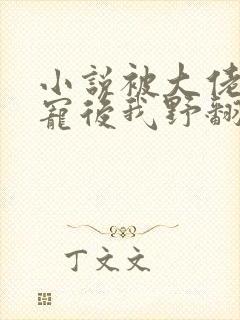 小説被大佬
寵後我野翻
丁文文